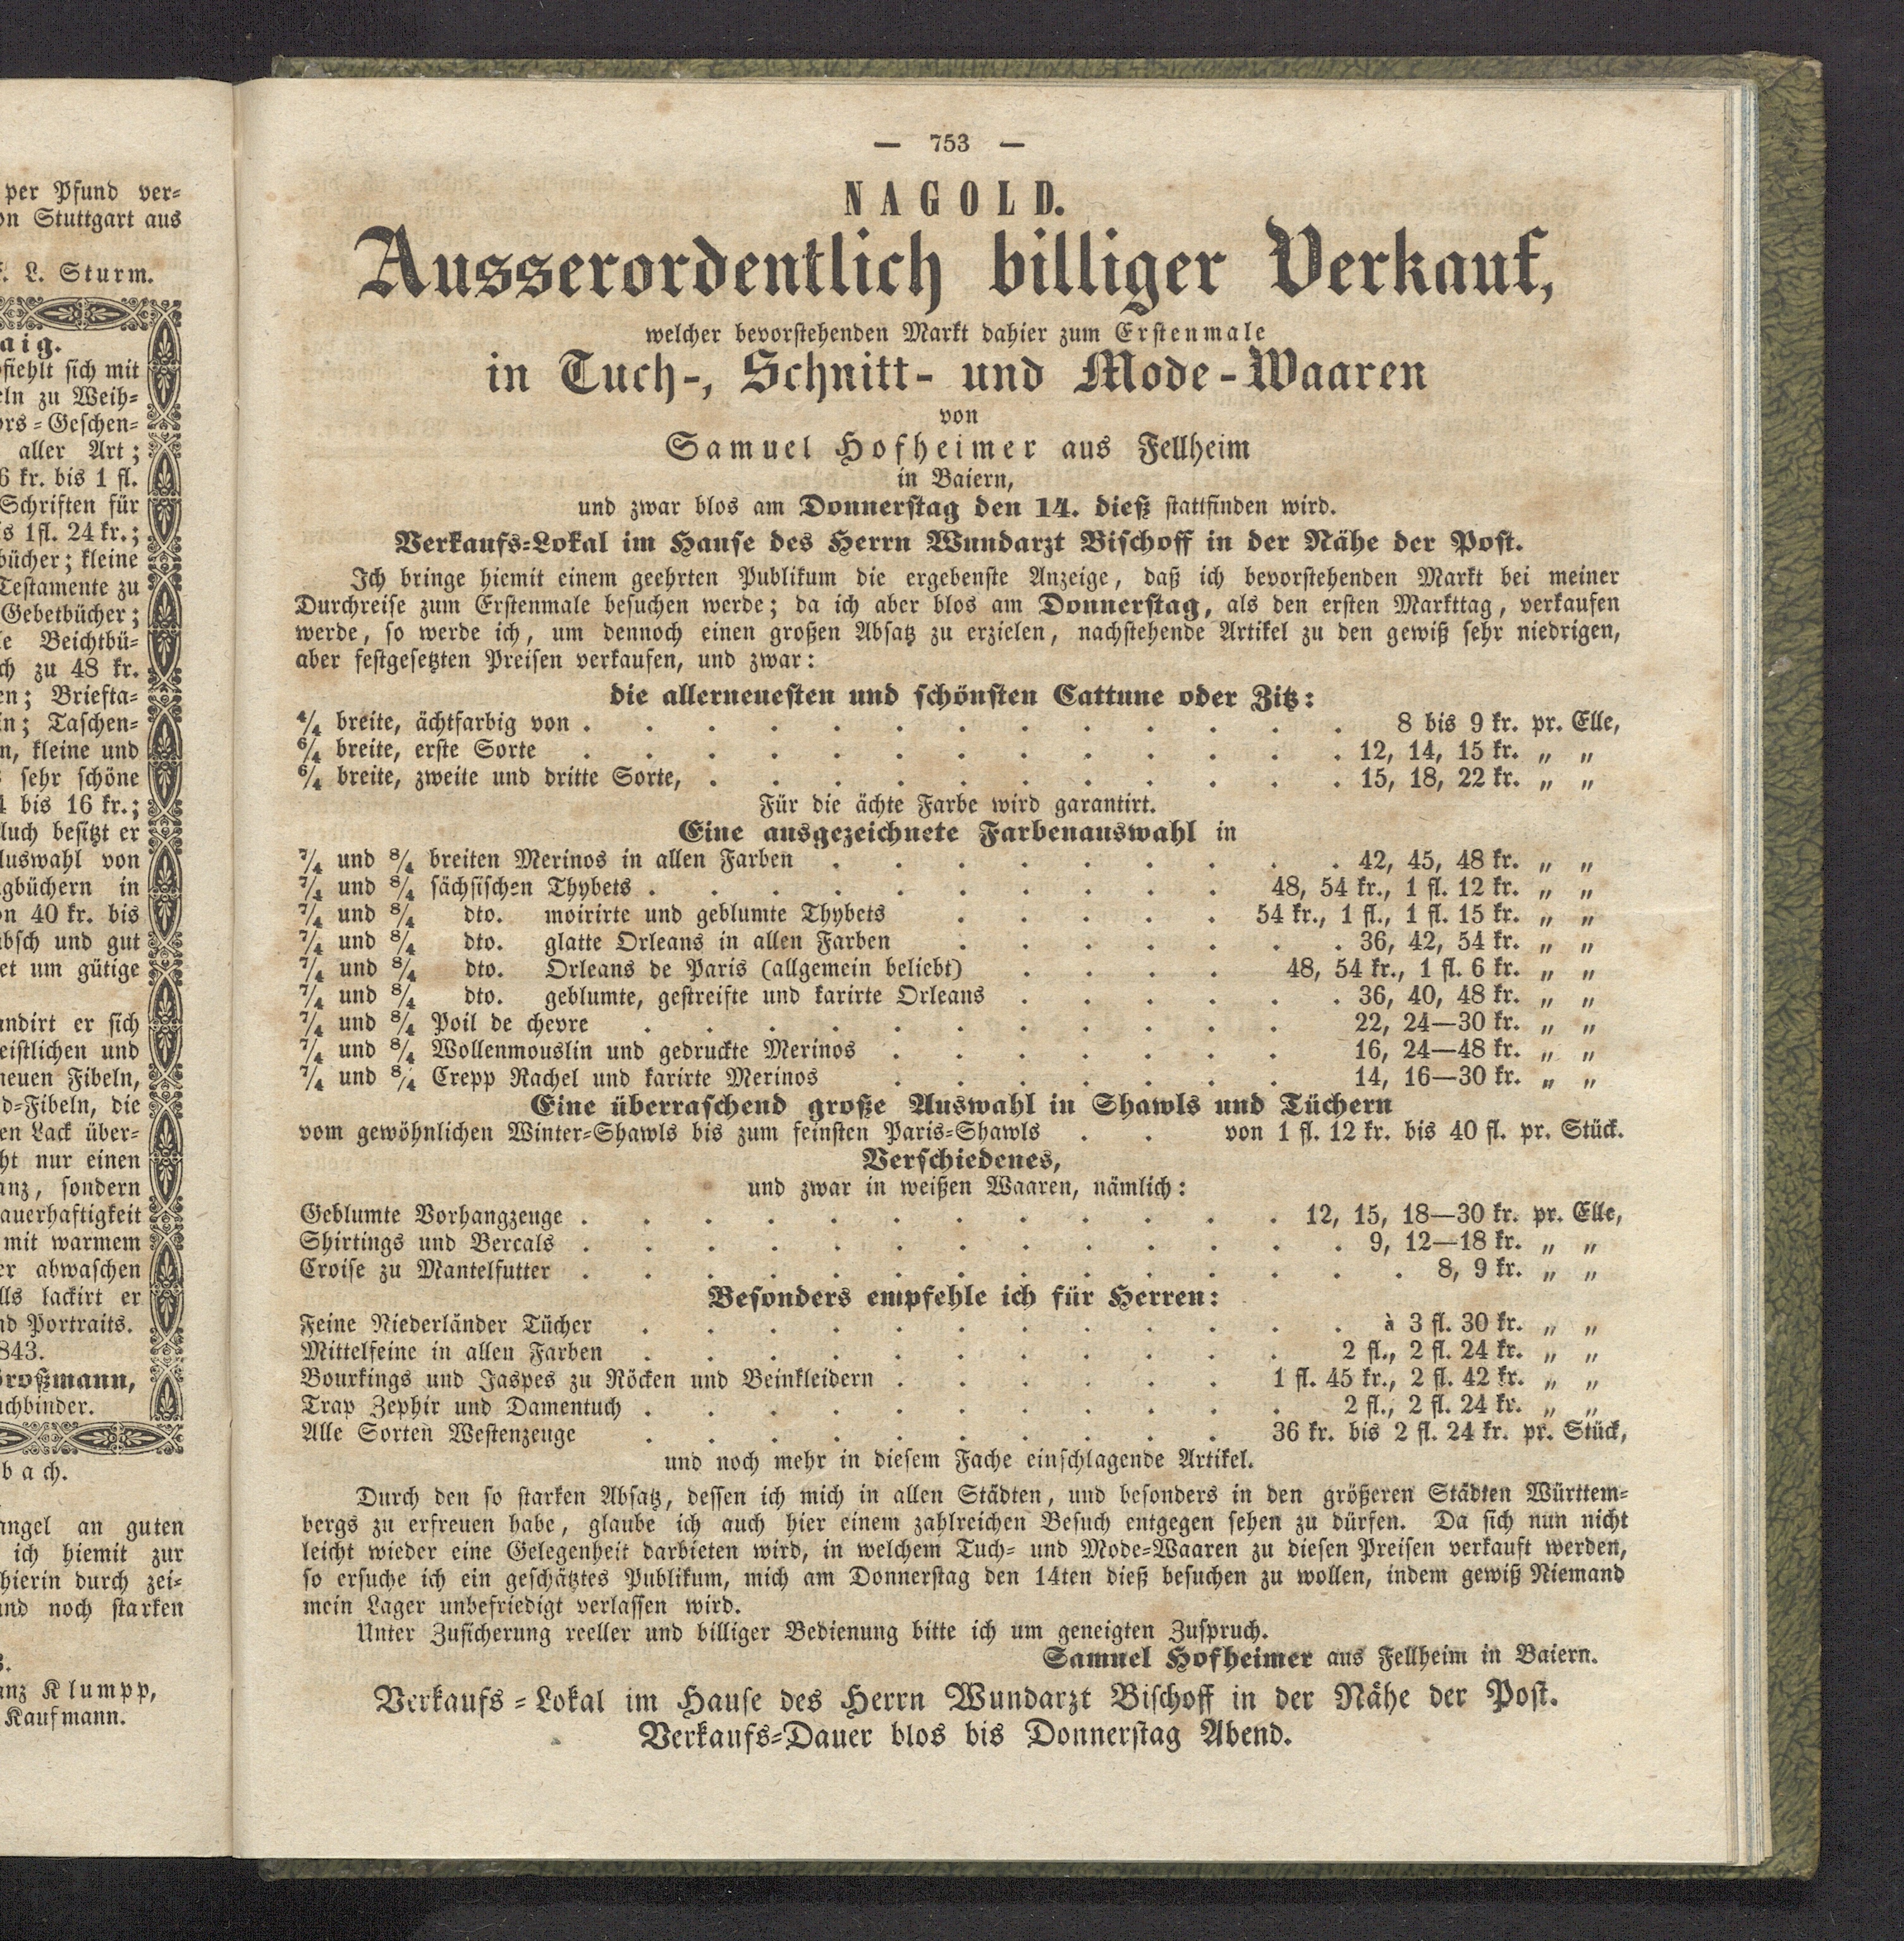 per Pfund ver-
on Stuttgart aus
L. Sturm.
aig.
fiehlt sich mit
eln zu Weih-
ors-Geschen-
aller Art;
6 kr. bis 1 fl.
Schriften für
is 1fl. 24 kr.;
bücher; kleine
Testamente zu
Gebetbücher;
le Beichtbü-
ch zu 48 kr.
en; Briefta-
in; Taschen-
n, kleine und
sehr schöne
bis 16 kr.;
Auch besitzt er
Auswahl von
gbüchern in
on 40 kr. bis
übsch und gut
et um gütige
andirt er sich
eistlichen und
neuen Fibeln,
d-Fibeln, die
en Lack über-
ht nur einen
anz, sondern
auerhaftigkeit
mit warmem
er abwaschen
lls lackirt er
nd Portraits.
843.
Großmann,
uchbinder.
bach.
angel an guten
ich hiemit zur
hierin durch zei-
und noch starken
anz Klumpp,
Kaufmann.
— 753 —
NAGOLD.
Ausserordentlich billiger Verkauf,
welcher bevorstehenden Markt dahier zum Erstenmale
in Tuch-, Schnitt- und Mode-Waaren
von
Samuel Hofheimer aus Fellheim
in Baiern,
und zwar blos am Donnerstag den 14. dieß stattfinden wird.
Verkaufs-Lokal im Hause des Herrn Wundarzt Bischoff in der Nähe der Post.
Ich bringe hiemit einem geehrten Publikum die ergebenste Anzeige, daß ich bevorstehenden Markt bei meiner
Durchreise zum Erstenmale besuchen werde; da ich aber blos am Donnerstag, als den ersten Markttag, verkaufen
werde, so werde ich, um dennoch einen großen Absatz zu erzielen, nachstehende Artikel zu den gewiß sehr niedrigen,
aber festgesetzten Preisen verkaufen, und zwar:
die allerneuesten und schönsten Cattune oder Zitz:
4/4 breite, ächtfarbig von . . . . . . . . . . . . . 8 bis 9 kr. pr. Elle,
6/4 breite, erste Sorte . . . . . . . . . . . . . 12, 14, 15 kr. „ „
6/4 breite, zweite und dritte Sorte, . . . . . . . . . . . 15, 18, 22 kr. „ „
Für die ächte Farbe wird garantirt.
Eine ausgezeichnete Farbenauswahl in
7/4 und 8/4 breiten Merinos in allen Farben . . . . . . . . . 42, 45, 48 kr. „ „
7/4 und 8/4 sächsischen Thybets . . . . . . . . . . 48, 54 kr., 1 fl. 12 kr. „ „
7/4 und 8/4 dto. moirirte und geblumte Thybets . . . . . 54 kr., 1 fl., 1 fl. 15 kr. „ „
7/4 und 8/4 dto. glatte Orleans in allen Farben . . . . . . . 36, 42, 54 kr. „ „
7/4 und 8/4 dto. Orleans de Paris (allgemein beliebt) . . . . 48, 54 kr., 1 fl. 6 kr. „ „
7/4 und 8/4 dto. geblumte, gestreifte und karirte Orleans . . . . . . 36, 40, 48 kr. „ „
7/4 und 8/4 Poil de chevre . . . . . . . . . . . 22, 24—30 kr. „ „
7/4 und 8/4 Wollenmouslin und gedruckte Merinos . . . . . . . 16, 24—48 kr. „ „
7/4 und 8/4 Crepp Rachel und karirte Merinos . . . . . . . 14, 16—30 kr. „ „
Eine überraschend große Auswahl in Shawls und Tüchern
vom gewöhnlichen Winter-Shawls bis zum feinsten Paris-Shawls . . von 1 fl. 12 kr. bis 40 fl. pr. Stück.
Verschiedenes,
und zwar in weißen Waaren, nämlich:
Geblumte Vorhangzeuge . . . . . . . . . . . . 12, 15, 18—30 kr. pr. Elle,
Shirtings und Bercals . . . . . . . . . . . . . 9, 12—18 kr. „ „
Croise zu Mantelfutter . . . . . . . . . . . . . . 8, 9 kr. „ „
Besonders empfehle ich für Herren:
Feine Niederländer Tücher . . . . . . . . . . . . à 3 fl. 30 kr. „ „
Mittelfeine in allen Farben . . . . . . . . . . . 2 fl., 2 fl. 24 kr. „ „
Bourkings und Jaspes zu Röcken und Beinkleidern . . . . . . 1 fl. 45 kr., 2 fl. 42 kr. „ „
Trap Zephir und Damentuch . . . . . . . . . . . 2 fl., 2 fl. 24 kr. „ „
Alle Sorten Westenzeuge . . . . . . . . . . 36 kr. bis 2 fl. 24 kr. pr. Stück,
und noch mehr in diesem Fache einschlagende Artikel.
Durch den so starken Absatz, dessen ich mich in allen Städten, und besonders in den größeren Städten Württem-
bergs zu erfreuen habe, glaube ich auch hier einem zahlreichen Besuch entgegen sehen zu dürfen. Da sich nun nicht
leicht wieder eine Gelegenheit darbieten wird, in welchem Tuch- und Mode-Waaren zu diesen Preisen verkauft werden,
so ersuche ich ein geschätztes Publikum, mich am Donnerstag den 14ten dieß besuchen zu wollen, indem gewiß Niemand
mein Lager unbefriedigt verlassen wird.
Unter Zusicherung reeller und billiger Bedienung bitte ich um geneigten Zuspruch.
Samuel Hofheimer aus Fellheim in Baiern.
Verkaufs-Lokal im Hause des Herrn Wundarzt Bischoff in der Nähe der Post.
Verkaufs-Dauer blos bis Donnerstag Abend.